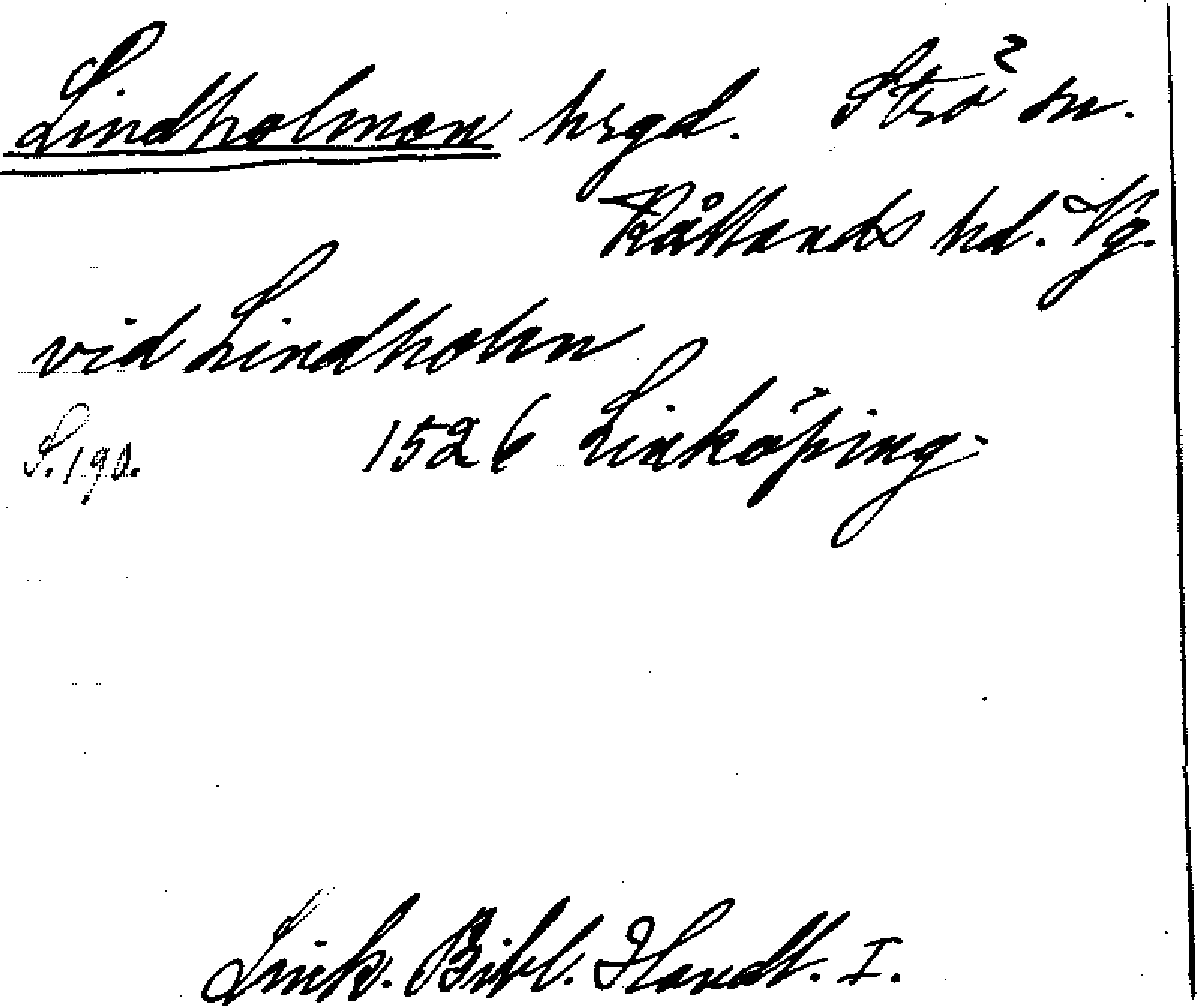 Lindholmen hrgd. Strö sn.
Kållands hd. Vg.
vid Lindholm
S. 190. 1526 Linköping
Link. Bibl. Handl. I.